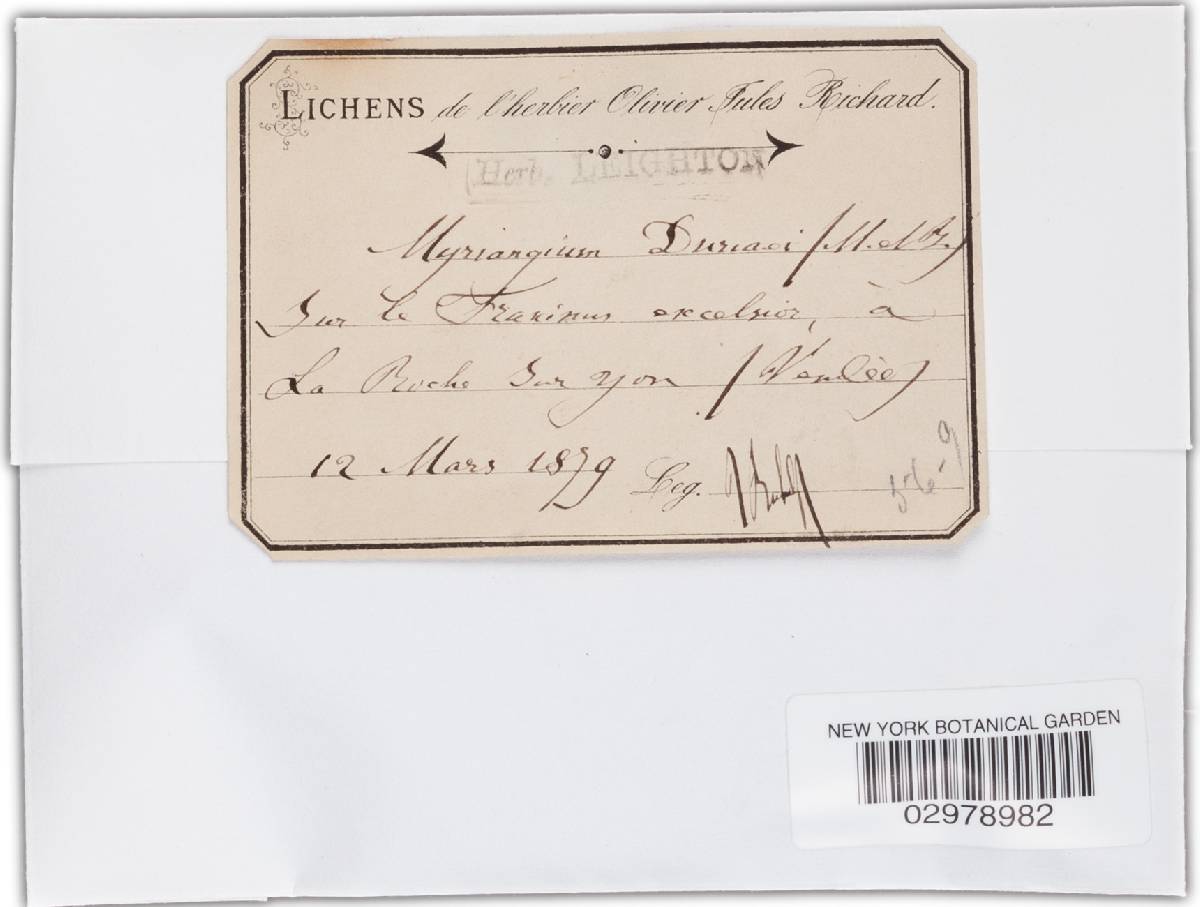 LICHENS de l'herbier Olivier Jules Richard.
(Herb. LEIGHTON)
Myriangium Duriaei (M. et B.)
Sur le Fraxinus excelsior, à
La Roche sur yon (Vendée)
12 Mars 1879 Leg.
NEW YORK BOTANICAL GARDEN
02978982